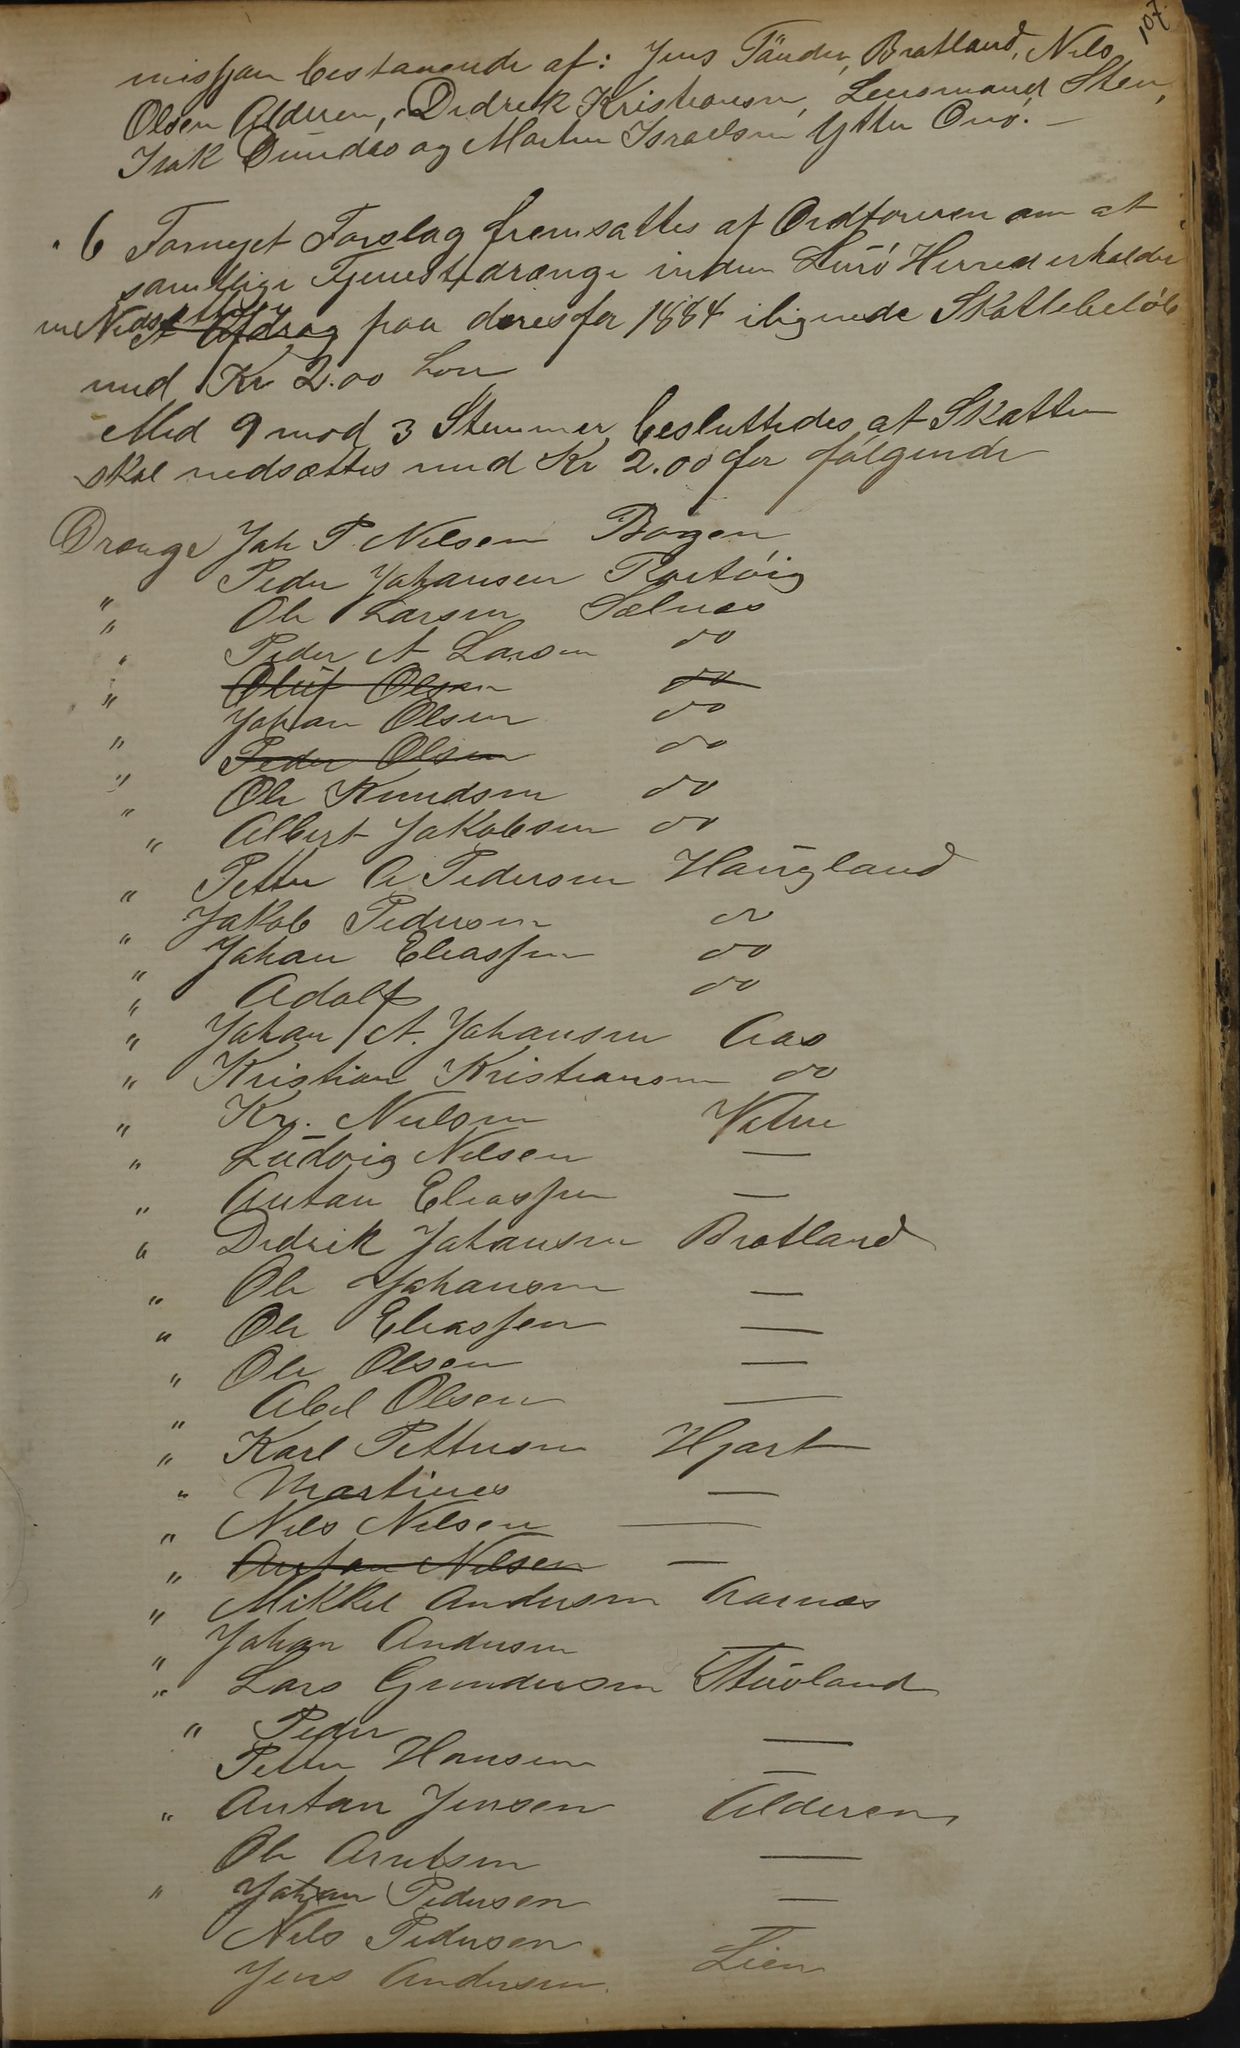 107.
missjon bestaaende af: Jens Tänder, Bratland, Nils
Olsen Alderen, Didrik Kristiansen, Lensmand Sten,
Isak Dundas og Martin Israelsen Ytter Onö. —
6 Fornyet Forslag fremsattes af Ordføreren om at
samtlige Tjenestedrænge inden Lurö Herred erholder
Nedsættelse
et Afdrag paa deres for 1884 ilignede Skattebelöb
med Kr 2.00 hver
Med 9 mod 3 Stemmer besluttedes at Skatten
skal nedsættes med Kr 2.00 for følgende
Drenge Joh P. Nilsen Bogen
" Peder Johansen
" Ole Larsen Selnes
" Peder A Larsen do
" Oluf Olsen do
" Johan Olsen do
" Peder Olsen do
" Ole Knudsen do
" Albert Jakobsen do
" Petter A Pedersen Haugland
" Jakob Pedersen do
" Johan Eliassen do
" Adolf do
" Johan A. Johansen Aas
" Kristian Kristiansen do
" Kr. Nielsen
" Ludvig Nilsen —
" Anton Eliassen —
" Didrik Johansen Bratland
" Ole Johansen —
" Ole Eliassen —
" Ole Olsen —
" Abel Olsen —
" Karl Pettersen Hjart
" Martines —
" Nils Nilsen —
" Anton Nilsen —
" Mikkel Andersen Aarnes
" Johan Andersen
" Lars Gundersen Stuvland
" Peder —
Petter Hansen —
" Anton Jensen Alderen
Ole Arntsen —
" Johan Pedersen —
Nils Pedersen
Jens Andersen Lien